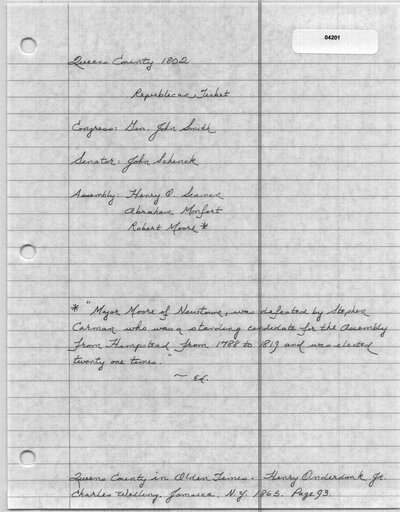 04201
Queens County 1802
Republican Ticket
Congress: Gen. John Smith
Senator: John Schenck
Assembly: Henry O. Seaman
Abraham Monfort
Robert Moore *
* "Major Moore of Newtown, was defeated by Stephen
Carman who was a standing candidate for the Assembly
from Hempstead from 1788 to 1819 and was elected
twenty one times."
~ Ed.
Queens County in Olden Times. Henry Onderdonk Jr.
Charles Welling, Jamaica. N.Y. 1865. Page 93.